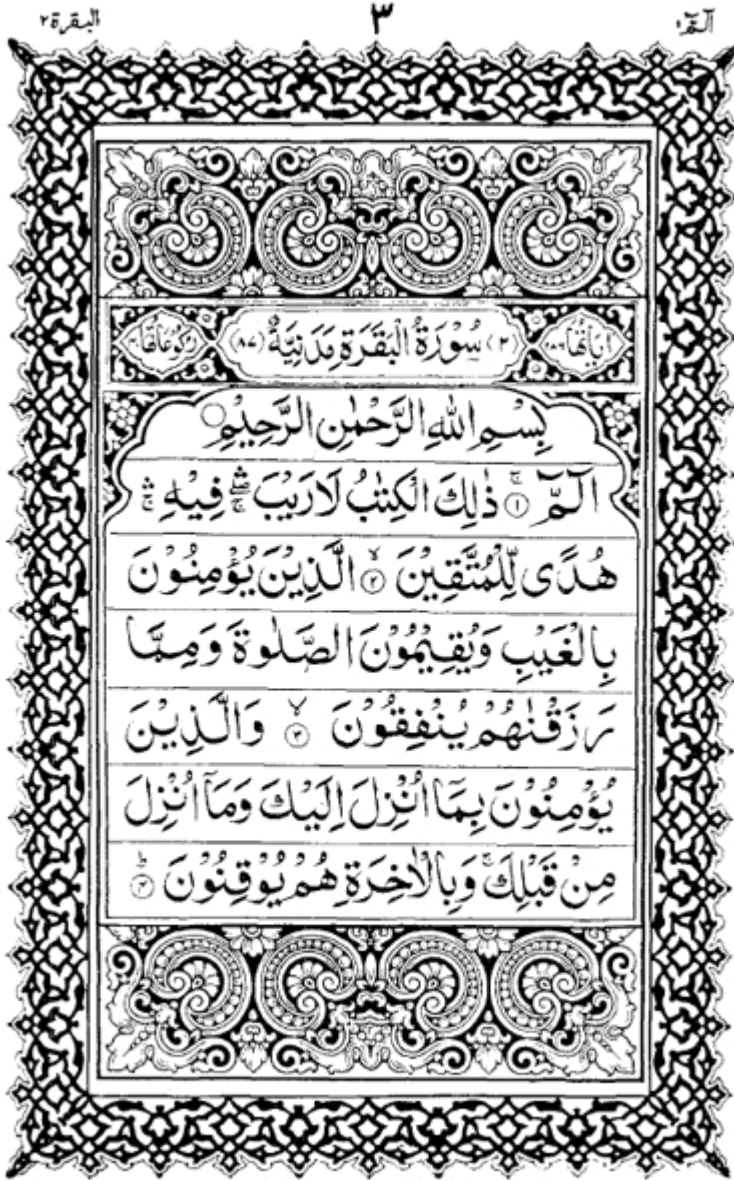 الٓمّٓ ۱
۳
البقرة ۲
اٰیَاتُهَا ۲۸۶
(۲) سُوْرَةُ الْبَقَرَةِ مَدَنِیَّةٌ (۸۷)
رُكُوْعَاتُهَا ۴۰
بِسْمِ اللهِ الرَّحْمٰنِ الرَّحِیْمِ
الٓمّٓ ۚ﴿۱﴾ ذٰلِكَ الْكِتٰبُ لَا رَیْبَ ۛۖۚ فِیْهِ ۛۚ
هُدًی لِّلْمُتَّقِیْنَ ۙ﴿۲﴾ الَّذِیْنَ یُؤْمِنُوْنَ
بِالْغَیْبِ وَیُقِیْمُوْنَ الصَّلٰوةَ وَمِمَّا
رَزَقْنٰهُمْ یُنْفِقُوْنَ ۙ﴿۳﴾ وَالَّذِیْنَ
یُؤْمِنُوْنَ بِمَاۤ اُنْزِلَ اِلَیْكَ وَمَاۤ اُنْزِلَ
مِنْ قَبْلِكَ ۚ وَبِالْاٰخِرَةِ هُمْ یُوْقِنُوْنَ ؕ﴿۴﴾